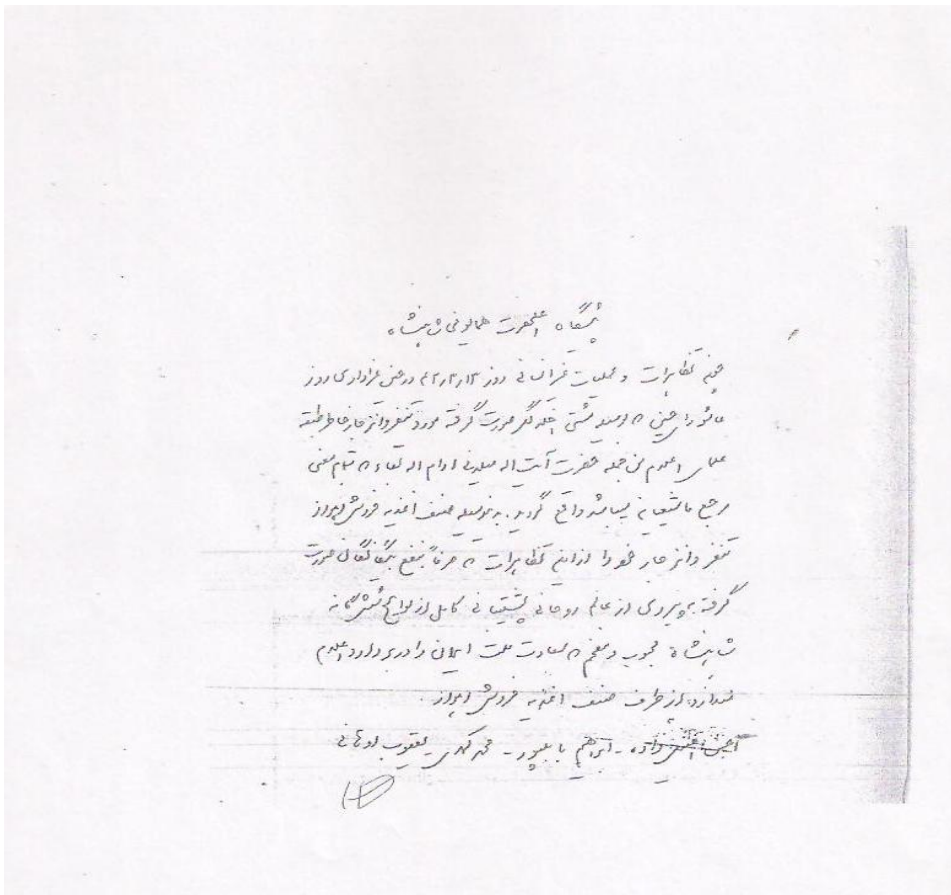 پیشگاه اعلیحضرت همایونی شاهنشاه
چون تظاهرات و عملیات خرابکارانه روز ۱۴ر۳ر۴۲ که در ضمن عزاداری روز
عاشورای حسینی که بوسیله مشتی اخلالگر صورت گرفته مورد تنفر و انزجار خاطر طبقه
علمای اعلام من جمله حضرت آیت اله میلانی ادام اله بقاء که تمام معنی
مرجع ما شیعیان میباشد واقع گردید. بدینوسیله صنف اغذیه فروش اهواز
تنفر و انزجار خود را از این تظاهرات که صرفاً بنفع بیگانگان صورت
گرفته پیروی از عالم روحانی پشتیبانی کامل از لوایح ششگانه
شاهنشاه محبوب و معظم که سعادت ملت ایران را در بر دارد اعلام
میدارد. از طرف صنف اغذیه فروش اهواز
ابراهیم - محمد - یعقوب